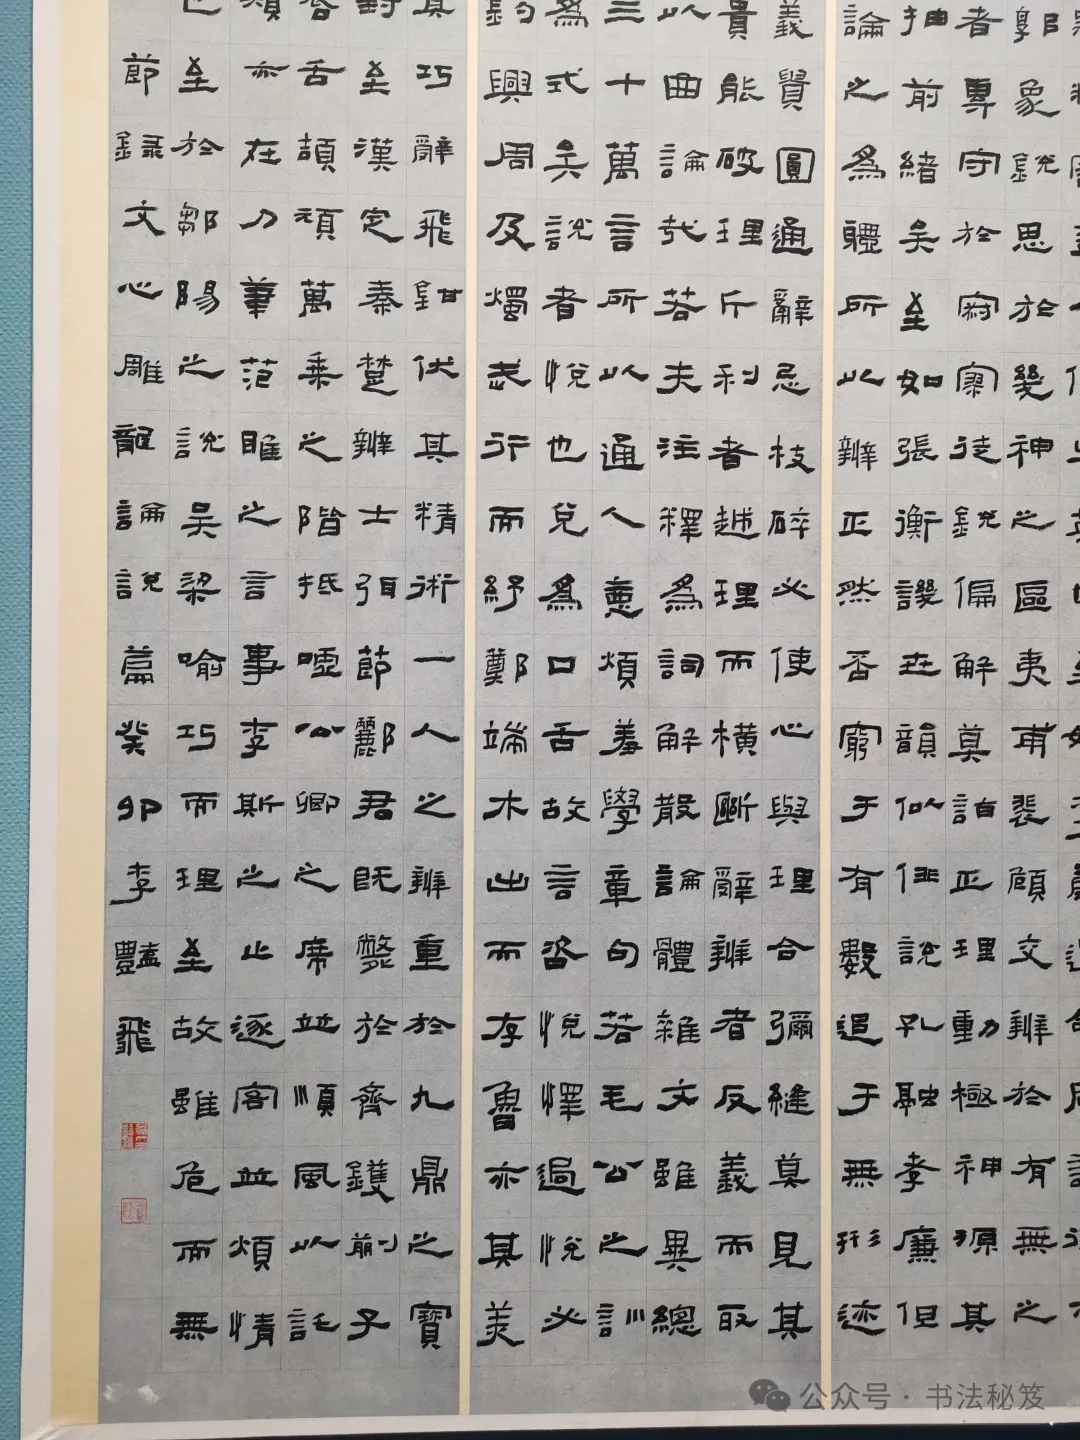 郭象銳思於幾神之區夷甫裴頠交辨於有無之
者專守於寂寥徒銳偏解莫詣正理動極神源其
抽前緒矣至如張衡譏世韻似俳說孔融孝廉但
論之為體所以辨正然否窮于有數追于無形迹
義貴圓通辭忌枝碎必使心與理合彌縫莫見其
貴能破理斤利者越理而橫斷辭辨者反義而取
以曲論哉若夫注釋為詞解散論體雜文雖異總
三十萬言所以通人惡煩羞學章句若毛公之訓
為式矣說者悅也兌為口舌故言咨悅懌過悅必
鈞興周及燭武行而紓鄭端木出而存魯亦其美
其巧辭飛鉗伏其精術一人之辨重於九鼎之寶
對至漢定秦楚辨士弭節酈君既斃於齊鑊蒯子
脣舌頡頏萬乘之階抵噓公卿之席並順風以託
頰亦在刀筆范雎之言事李斯之止逐客並煩情
也至於鄒陽之說吳梁喻巧而理至故雖危而無
節錄文心雕龍論說篇癸卯李豔飛
公众号·书法秘笈